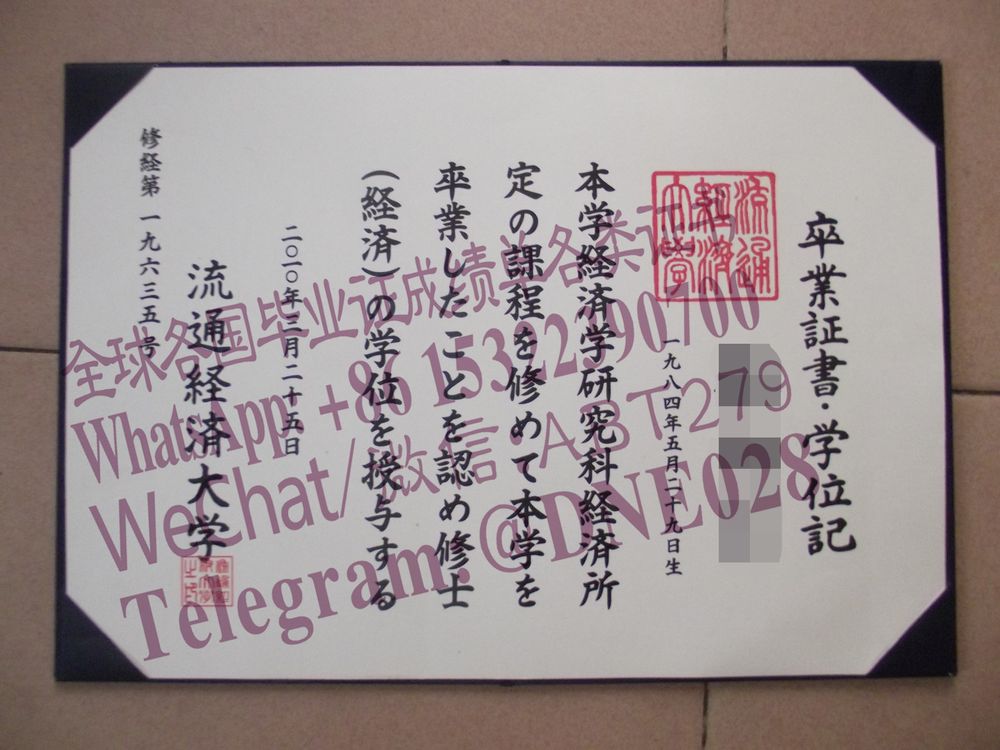 卒業証書・学位記
流通
經濟
大學
一九八四年五月二十九日生
本学経済学研究科経済所
定の課程を修めて本学を
卒業したことを認め修士
(経済)の学位を授与する
二〇一〇年三月二十五日
流通経済大学
修経第一九六三五号
全球各国毕业证成绩单各类证书
WhatsApp: +86 15322590700
WeChat/微信 ABT279
Telegram: @DNE028